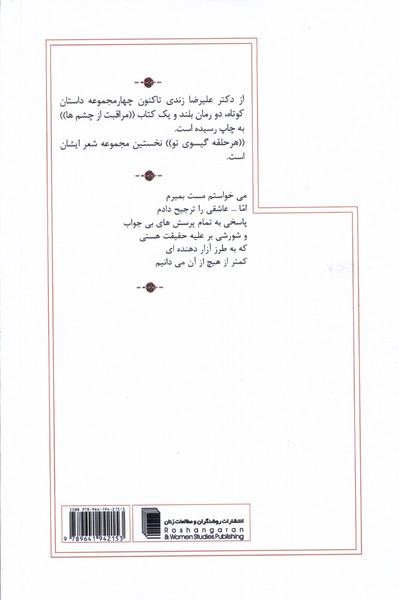 از دکتر علیرضا زندی تاکنون چهارمجموعه داستان
کوتاه، دو رمان بلند و یک کتاب ((مراقبت از چشم ها))
به چاپ رسیده است.
((هرحلقه گیسوی تو)) نخستین مجموعه شعر ایشان
است.
می خواستم مست بمیرم
امّا ... عاشقی را ترجیح دادم
پاسخی به تمام پرسش های بی جواب
و شورشی بر علیه حقیقت هستی
که به طرز آزار دهنده ای
کمتر از هیچ از آن می دانیم
ISBN 978-964-194-215-3
9 789641 942153
انتشارات روشنگران و مطالعات زنان
Roshangaran
& Women Studies Publishing